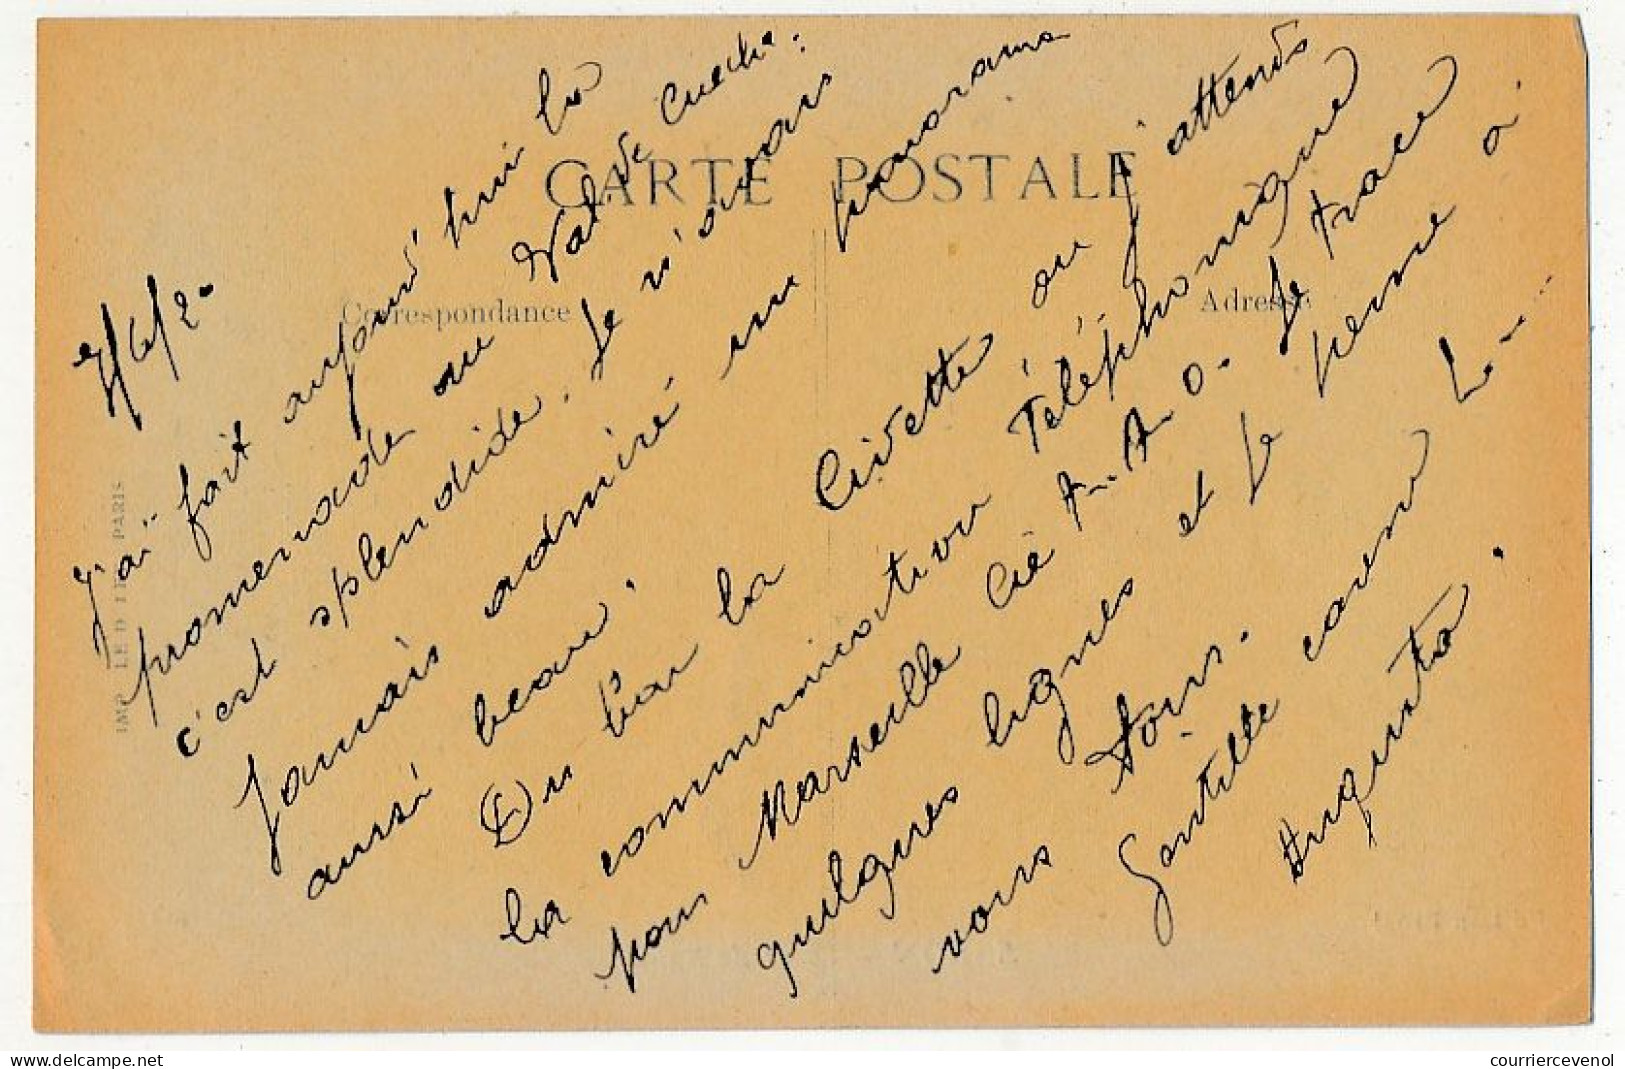 CARTE POSTALE
Correspondance
Adresse
7/6/2-
J'ai fait aujourd'hui la
promenade au Val de
c'est splendide. Je n'avais
Jamais admiré un panorama
aussi beau.
Du bar la Civette où j'attends
la communication Téléphonique
pour Marseille Cie je trace
quelques lignes et je pense à
vous
Gentille
Augusta.
IMP. LE D PARIS
courriercevenol